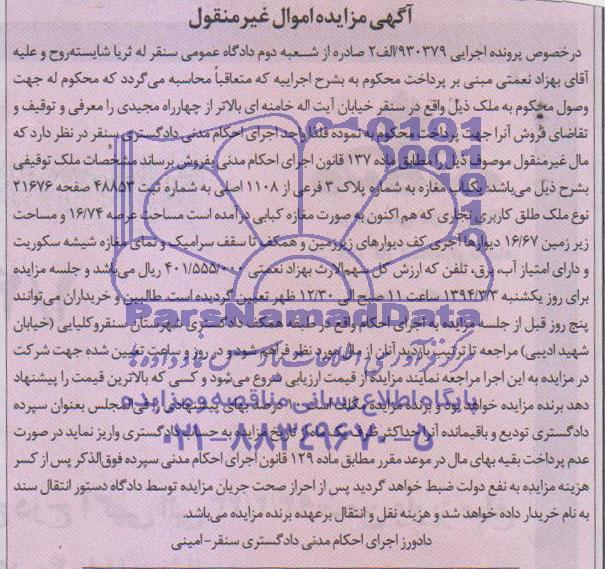 آگهی مزایده اموال غیرمنقول
درخصوص پرونده اجرایی ۹۳۰۳۷۹/الف۲ صادره از شعبه دوم دادگاه عمومی سنقر له ثریا شایسته‌روح و علیه
آقای بهزاد نعمتی مبنی بر پرداخت محکوم به بشرح اجراییه که متعاقباً محاسبه می‌گردد که محکوم له جهت
وصول محکوم به ملک ذیل واقع در سنقر خیابان آیت اله خامنه ای بالاتر از چهارراه مجیدی را معرفی و توقیف و
تقاضای فروش آنرا جهت پرداخت محکوم به نموده فلذا واحد اجرای احکام مدنی دادگستری سنقر در نظر دارد که
مال غیرمنقول موصوف ذیل را مطابق ماده ۱۳۷ قانون اجرای احکام مدنی بفروش برساند مشخصات ملک توقیفی
بشرح ذیل می‌باشد: یکباب مغازه به شماره پلاک ۳ فرعی از ۱۱۰۸ اصلی به شماره ثبت ۴۸۸۵۳ صفحه ۲۱۶۷۶
نوع ملک طلق کاربری تجاری که هم اکنون به صورت مغازه کبابی درآمده است مساحت عرصه ۱۶/۷۴ و مساحت
زیر زمین ۱۶/۶۷ دیوارها آجری کف دیوارهای زیرزمین و همکف تا سقف سرامیک و نمای مغازه شیشه سکوریت
و دارای امتیاز آب، برق، تلفن که ارزش کل سهم‌الارث بهزاد نعمتی ۴۰۱/۵۵۵/۰۰۰ ریال می‌باشد و جلسه مزایده
برای روز یکشنبه ۱۳۹۴/۳/۳ ساعت ۱۱ صبح الی ۱۲/۳۰ ظهر تعیین گردیده است. طالبین و خریداران می‌توانند
ParsNamadData
پنج روز قبل از جلسه مزایده به اجرای احکام واقع در طبقه همکف دادگستری شهرستان سنقروکلیایی (خیابان
شهید ادیبی) مراجعه تا ترتیب بازدید آنان از مال مورد نظر فراهم شود و در روز و ساعت تعیین شده جهت شرکت
در مزایده به این اجرا مراجعه نمایند مزایده از قیمت ارزیابی شروع می‌شود و کسی که بالاترین قیمت را پیشنهاد
پایگاه اطلاع رسانی مناقصه و مزایده
دهد برنده مزایده خواهد بود و برنده مزایده مکلف است ۱۰ درصد بهای پیشنهادی را فی المجلس بعنوان سپرده
۰۲۱-۸۸۳۴۹۶۷۰-۵
دادگستری تودیع و باقیمانده آنرا حداکثر ظرف یک ماه از تاریخ مزایده به حساب دادگستری واریز نماید در صورت
عدم پرداخت بقیه بهای مال در موعد مقرر مطابق ماده ۱۲۹ قانون اجرای احکام مدنی سپرده فوق‌الذکر پس از کسر
هزینه مزایده به نفع دولت ضبط خواهد گردید پس از احراز صحت جریان مزایده توسط دادگاه دستور انتقال سند
به نام خریدار داده خواهد شد و هزینه نقل و انتقال برعهده برنده مزایده می‌باشد.
دادورز اجرای احکام مدنی دادگستری سنقر- امینی